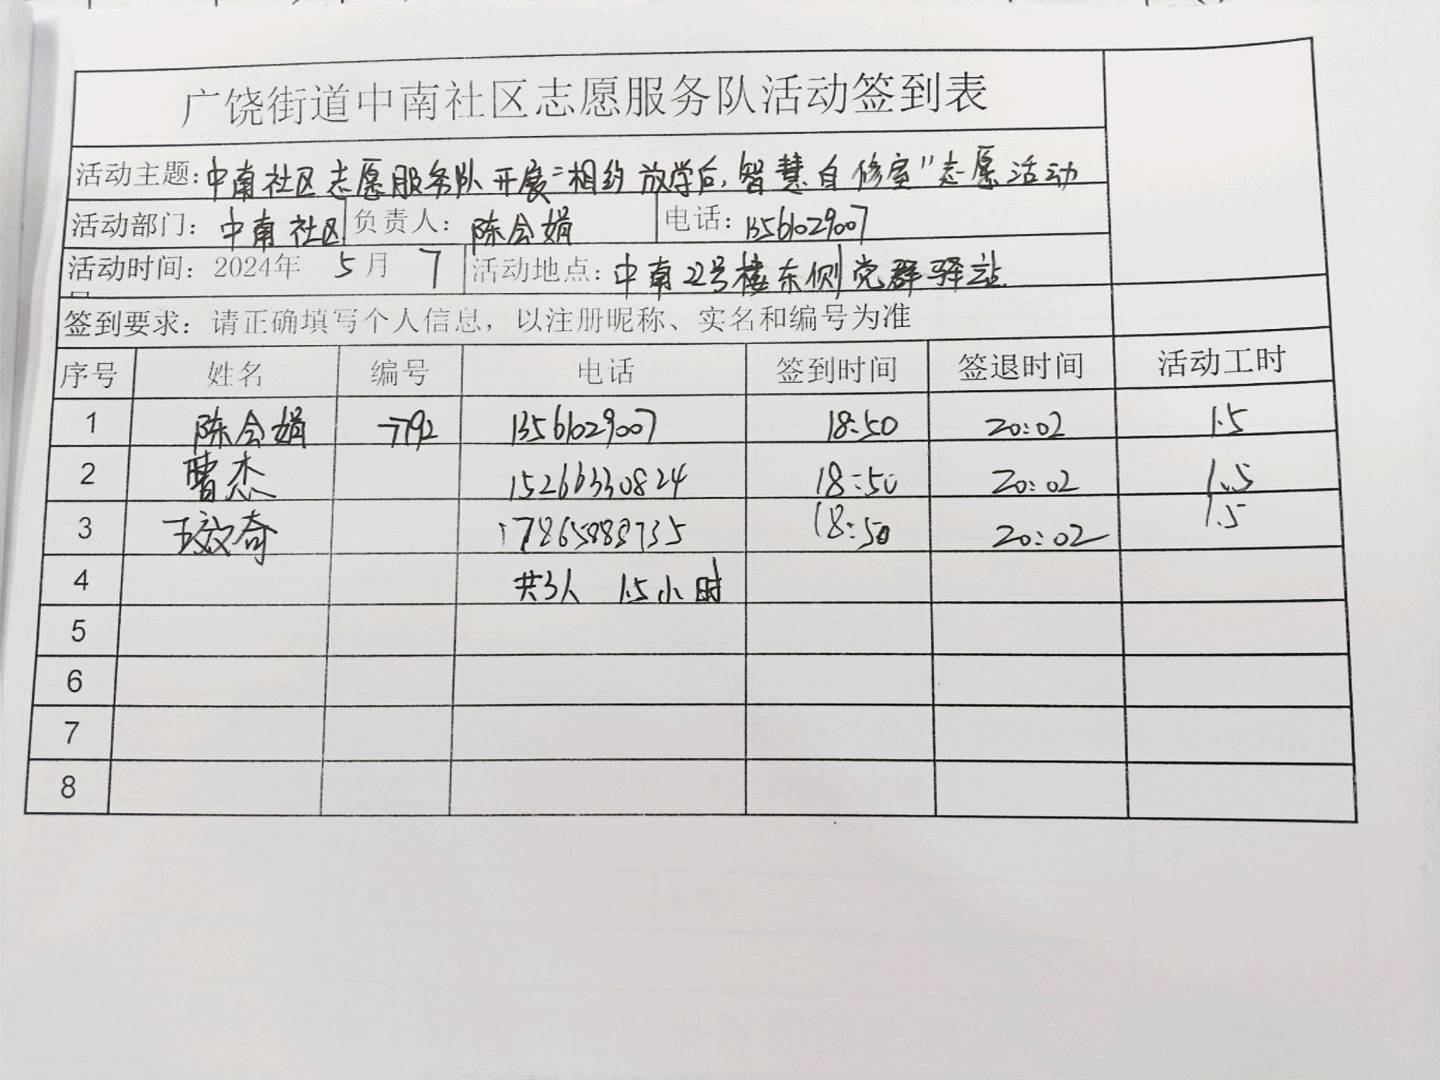 广饶街道中南社区志愿服务队活动签到表
活动主题:中南社区志愿服务队开展"相约放学后,智慧自修室"志愿活动
活动部门:中南社区 负责人:陈会娟 电话:13561029007
活动时间:2024年 5月 7 活动地点:中南22号楼东侧党群驿站
签到要求:请正确填写个人信息,以注册昵称、实名和编号为准
序号 姓名 编号 电话 签到时间 签退时间 活动工时
1 陈会娟 7792 13561029007 18:50 20:02 1.5
2 曹杰 15266330824 18:50 20:02 1.5
3 王文奇 17865888735 18:50 20:02 1.5
4 共3人 1.5小时
5
6
7
8